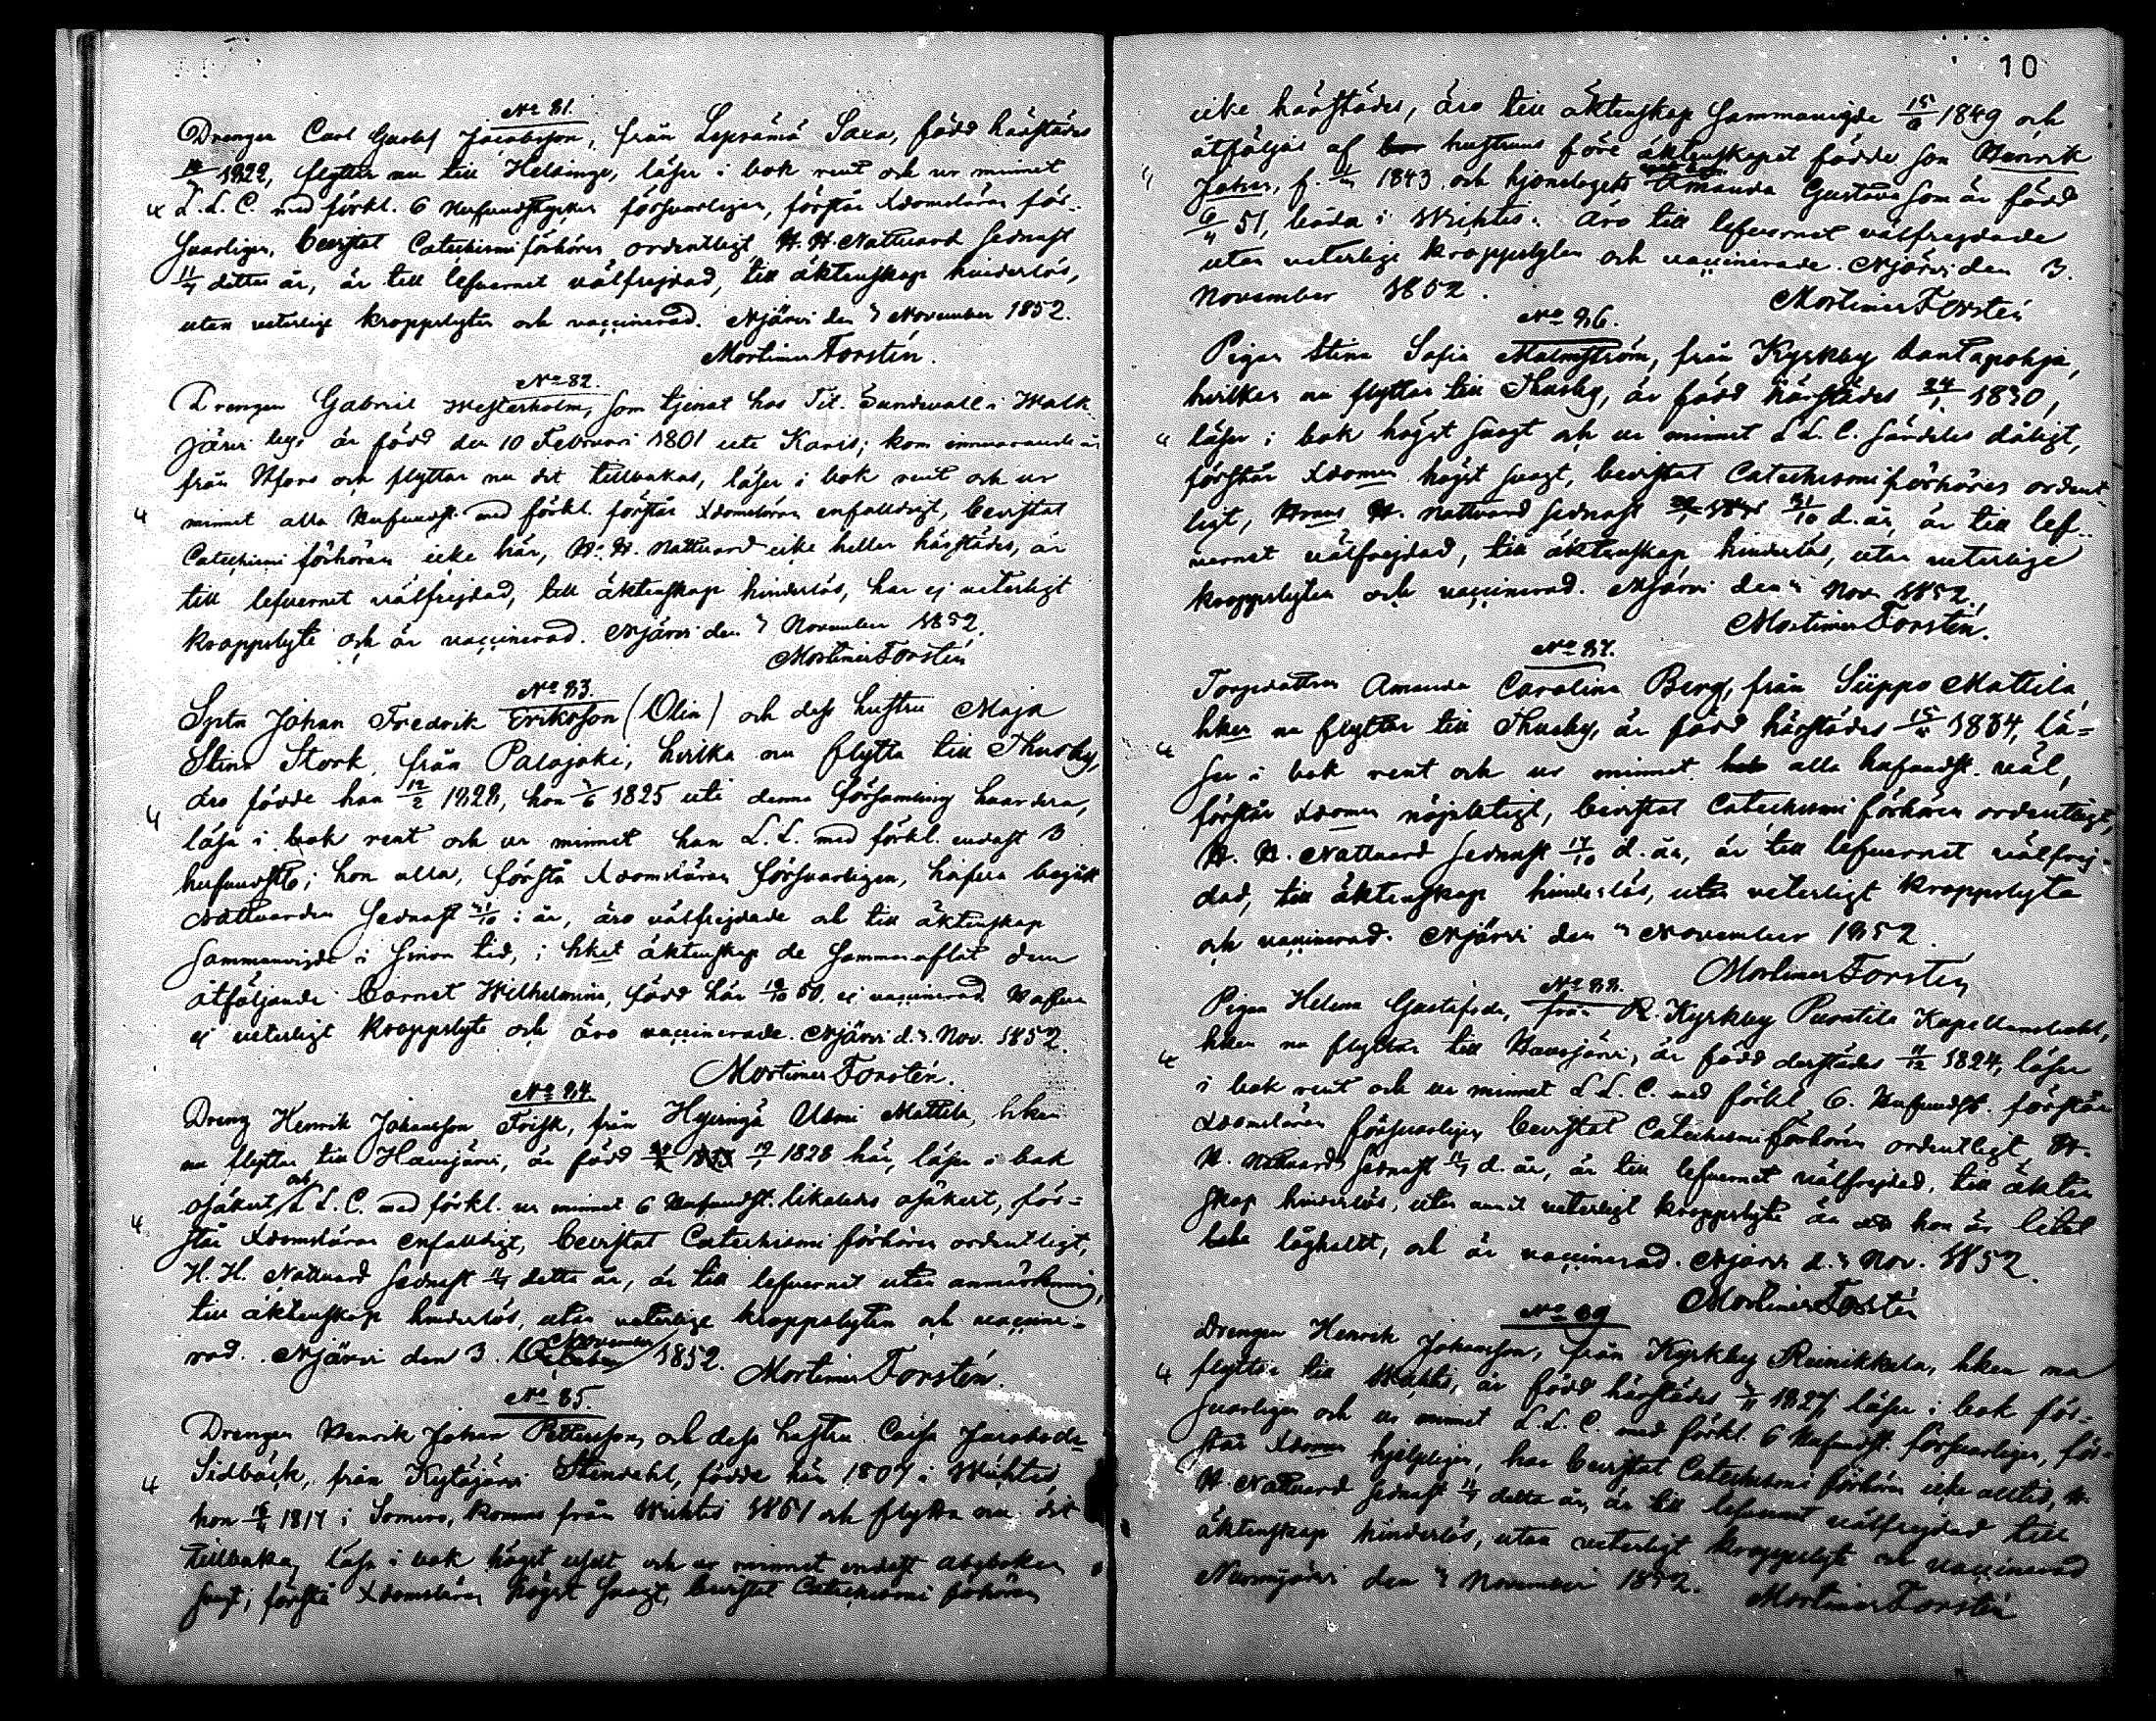 No 81.
Drengen Carl Gustaf Jacobsson, från Lepsämä Saxa, född härstädes
1822, flyttar nu till Helsinge, läser i bok rent och ur minnet
L. L. C. med förkl. 6 Hufvudstycken försvarligen, förstår Xdomsläran för-
svarligen, bevistat Catechismi förhören ordentligt, H. H. Nattvard sednast
11/7 detta år, är till lefvernet välfrejdad, till äktenskap hinderlös,
utan veterlige kroppslyten och vaccinerad. Njärvi den 3 November 1852.
Mortimer Forstén.
No 82.
Drengen Gabriel Westerholm, som tjenat hos Tit. Sundvall i Walk-
järvi by, är född den 10 Februari 1801 uti Karis; kom innevarande år
från Hfors och flyttar nu dit tillbakas, läser i bok rent och ur
minnet alla Hufvudst. med förkl. förstår Xdomsläran enfalldigt, bevistat
Catechismi förhören icke här, H. H. Nattvard icke heller härstädes, är
till lefvernet välfrejdad, till äktenskap hinderlös, har ej veterligt
kroppslyte och är vaccinerad. Njärvi den 3 November 1852.
Mortimer Forstén
No 83.
Sytn Johan Fredrik Eriksson (Olin) och dess hustru Maja
Stina Stork, från Palojoki, hvilka nu flytta till Thusby,
äro födde han 12/2 1828, hon 7/6 1825 uti denna församling hvardera,
läsa i bok rent och ur minnet han L. L. med förkl. endast 3
hufvudst; hon alla, förstå Xdomsläran försvarligen, hafva begått
Nattvarden sednast 31/10 i år, äro välfrejdade och till äktenskap
sammanvigde i sinom tid, i hket äktenskap de sammanaflat dem
åtföljande barnet Wilhelmina, född här 19/10 50. ej vaccinerad. Hafva
ej veterligt kroppslyte och äro vaccinerade. Njärvi d. 3. Nov. 1852.
Mortimer Forstén.
No 84.
Dreng Henrik Johansson Frisk, från Hyvingä Uldmi Mattila, hken
nu flyttar till Hausjärvi, är född 19/7 1828 här, läser i bok
osäkert, och L L. C. med förkl. ur minnet 6 Hufvudst. likaledes osäkert, för-
står Xdomsläran enfalldigt, bevistat Catechismi förhören ordentligt,
H. H. Nattvard sednast 11/7 detta år, är till lefvernet utan anmärkning,
till äktenskap hinderlös, utan veterlige kroppslyten och vaccine-
rad. Njärvi den 3. November 1852.
Mortimer Forstén.
No 85.
Drengen Henrik Johan Pettersson, och dess hustru Caisa Jacobsdr
Sidbäck, från Kytäjärvi Stendahl, födde han 1807 i Wichtis
hon 1817 i Somero, komne från Wichtis 1851 och flytta nu dit
tillbaka, läsa i bok högst uselt och ur minnet endast abcboken
svagt, förstå Xdomsläran högst svagt, bevistat Catechismi förhören
10
icke härstädes, äro till äktenskap sammanvigde 15/8 1849 och
åtföljas af hustruns före äktenskapet födde son Henrik
Johan, f. 1843, och hjonelagets Amanda Gustava som är född
6/11 51, båda i Wichtis. Äro till lefvernet välfrejdade
utan veterlige kroppslyten och vaccinerade. Njärvi den 3.
November 1852.
Mortimer Forstén
No 86.
Pigan Stina Sofia Malmström, från Kyrkby Lantapohja,
hvilken nu flyttar till Thusby, är född härstädes 24/1 1830,
läser i bok högst svagt och ur minnet L L. C. särdeles dåligt,
förstår Xdomen högst svagt, bevistat Catechismi förhöres ordent-
ligt, H. Nattvard sednast 31/10 d. år, är till lef-
vernet välfrejdad, till äktenskap hinderlös, utan veterlige
kroppslyten och vaccinerad. Njärvi den 3 Nov 1852
Mortimer Forstén.
No 87.
Torpedottren Amanda Carolina Berg, från Siippo Mattila,
hken nu flyttar till Thusby, är född härstädes 1834, lä-
ser i bok rent och ur minnet alla hufvudst. väl,
förstår Xdomen nöjaktigt, bevistat Catechismi förhören ordentligt,
H. H. Nattvard sednast 17/10 d. år, är till lefvernet välfrej-
dad, till äktenskap hinderlös, utan veterligt kroppslyte
och vaccinerad. Njärvi den 3 November 1852.
Mortimer Forstén
No 88.
Pigan Helena Gustafsdr, från R. Kyrkby Puratila Kapellansbohl,
hken nu flyttar till Hausjärvi, är född derstädes 1824, läser
i bok rent och ur minnet L L. C. med förkl 6. Hufvudst. förstår
Xdomsläran försvarligen bevistat Catechismi förhören ordentligt, H.
H. Nattvard sednast 11/7 d. år, är till lefvernet välfrejdad, till äkten
skap hinderlös, utan annat veterligt kroppslyte än hon är litet
låghalt, och är vaccinerad. Njärvi d. 3 Nov. 1852.
Mortimer Forstén
No 89
Drengen Henrik Johansson, från Kyrkby Reinikkala, hken nu
flyttar till Wichtis, är född härstädes 1827, läser i bok för-
svarligen och ur minnet L. L. C. med förkl. 6 Hufvudst. försvarligen, för-
står Xdomen hjelpligen, har bevistat Catechismi förhören icke alltid, H.
H. Nattvard sednast 11/7 detta år, är till lefvernet välfrejdad till
äktenskap hinderlös, utan veterligt kroppslyte och vaccinerad
Nurmijärvi den 3 November 1852.
Mortimer Forstén